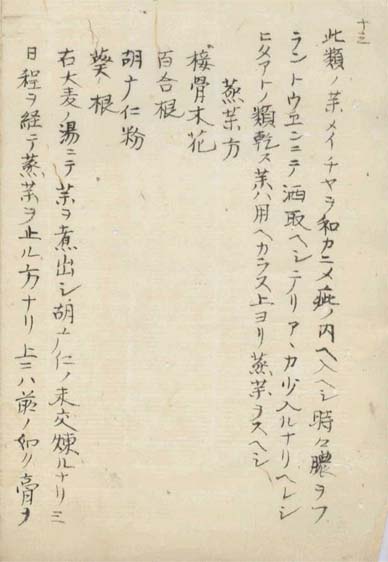 十三
此類ノ茶メイチヤヲ和カニメ疵ノ内ヘ入ヘシ時々膿ヲフ
ラントウヱンニテ洒取ヘシテリアヽカ少入ルナリヘレシ
ヒタアトノ類乾ス茶ハ用ヘカラス上ヨリ蒸茶ヲスヘシ
蒸茶方
接骨木花
百合根
胡ナノ仁粉
葵根
右大麦ノ湯ニテ茶ヲ煮出シ胡ナノ仁ノ末交煉ルナリ三
日程ヲ経テ蒸茶ヲ止ル方ナリ上ニハ前ノ如ク膏ヲ